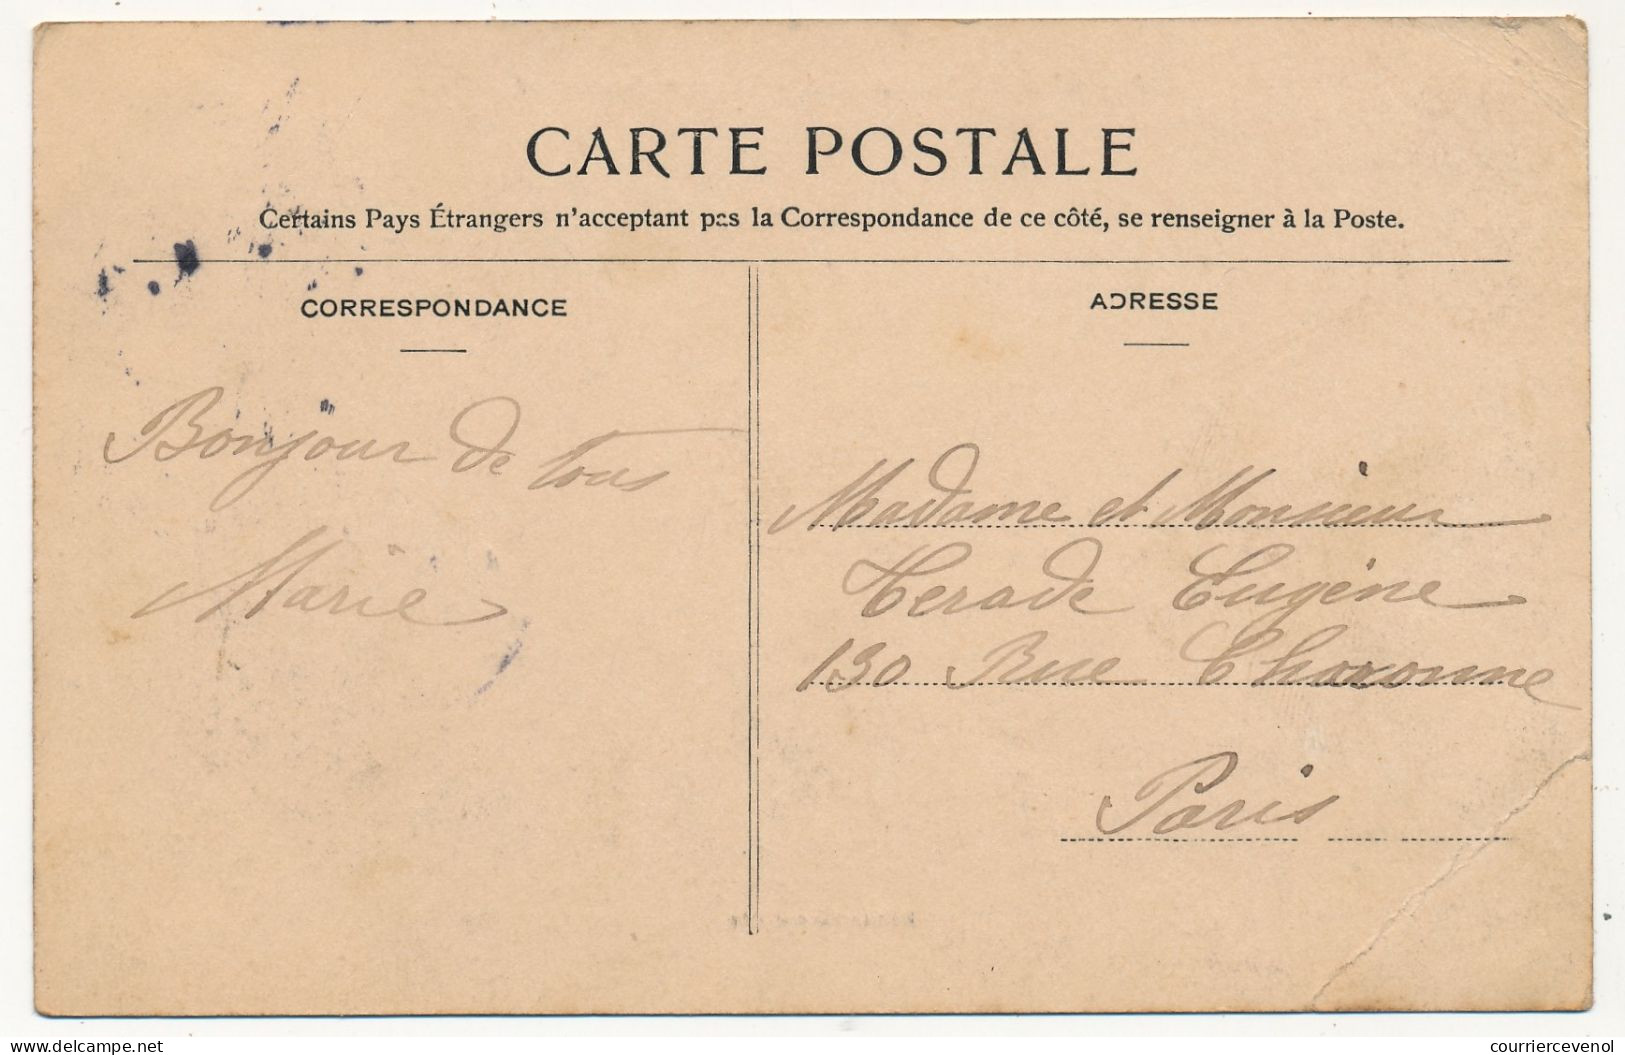 CARTE POSTALE
Certains Pays Étrangers n'acceptant pas la Correspondance de ce côté, se renseigner à la Poste.
CORRESPONDANCE
Bonjour de tous
Marie
ADRESSE
Madame et Monsieur
Terade Eugène
130 Rue Charonne
Paris
delcampe.net
courriercevenol